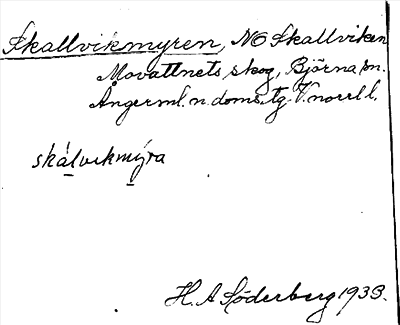 Skallvikmyren, NO Skallviken
Movattnets skog, Björna sn.
Ångerml. n. doms. tg. V. norrl l.
skálvikmýra
H. A Söderberg 1933.